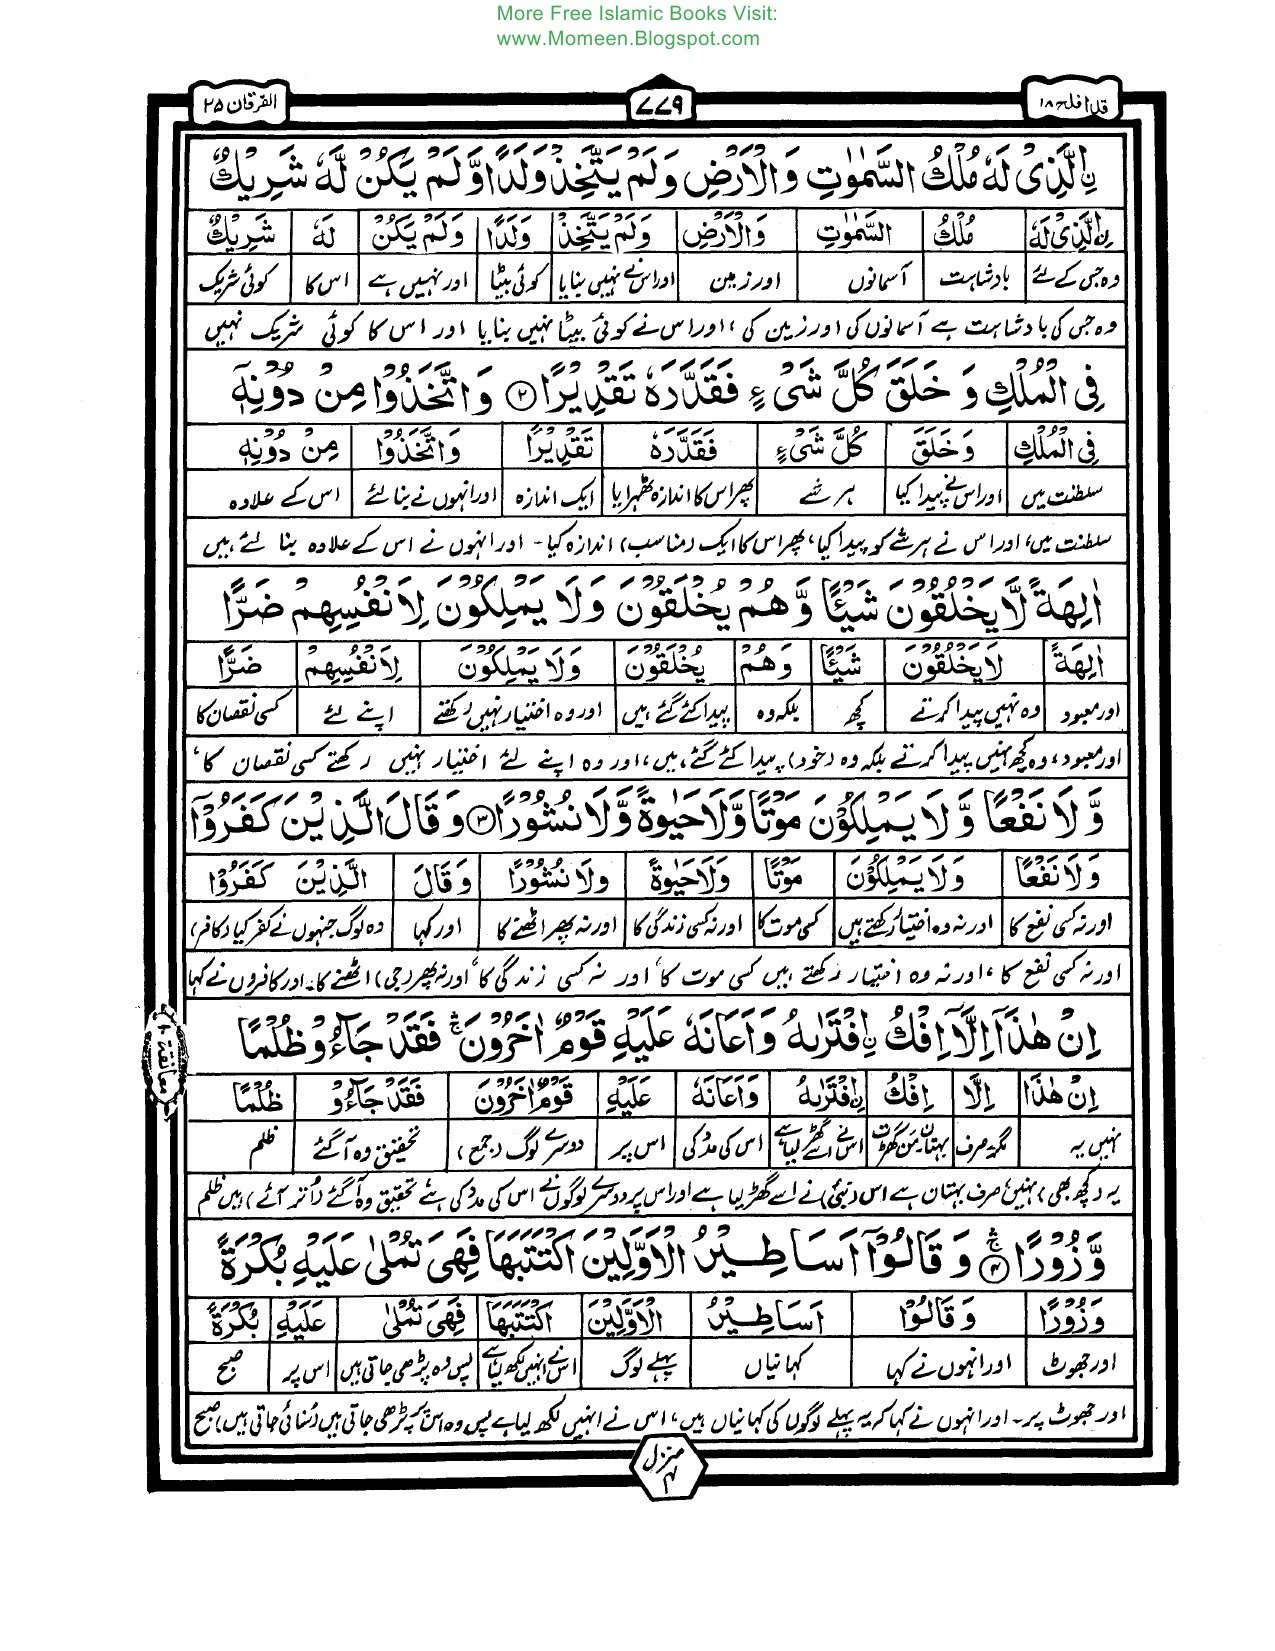 More Free Islamic Books Visit:
www.Momeen.Blogspot.com
قد افلح ۱۸
۷۷۹
الفرقان ۲۵
نِ الَّذِیْ لَهٗ مُلْكُ السَّمٰوٰتِ وَالْاَرْضِ وَلَمْ یَتَّخِذْ وَلَدًا وَّلَمْ یَكُنْ لَّهٗ شَرِیْكٌ
نِ الَّذِیْ لَهٗ مُلْكُ السَّمٰوٰتِ وَالْاَرْضِ وَلَمْ یَتَّخِذْ وَلَدًا وَلَمْ یَكُنْ لَهٗ شَرِیْكٌ
وہ جس کے لئے بادشاہت آسمانوں اور زمین اور اس نے نہیں بنایا کوئی بیٹا اور نہیں ہے اس کا کوئی شریک
وہ جس کی بادشاہت ہے آسمانوں کی اور زمین کی، اور اس نے کوئی بیٹا نہیں بنایا اور اس کا کوئی شریک نہیں
فِی الْمُلْكِ وَ خَلَقَ كُلَّ شَیْءٍ فَقَدَّرَهٗ تَقْدِیْرًا ۲ وَاتَّخَذُوْا مِنْ دُوْنِهٖ
فِی الْمُلْكِ وَخَلَقَ كُلَّ شَیْءٍ فَقَدَّرَهٗ تَقْدِیْرًا وَاتَّخَذُوْا مِنْ دُوْنِهٖ
سلطنت میں اور اس نے پیدا کیا ہر شے پھر اس کا اندازہ ٹھہرایا ایک اندازہ اور انہوں نے بنا لئے اس کے علاوہ
سلطنت میں، اور اس نے ہر شے کو پیدا کیا، پھر اس کا ایک (مناسب) اندازہ کیا - اور انہوں نے اس کے علاوہ بنا لئے ہیں
اٰلِهَةً لَّا یَخْلُقُوْنَ شَیْـًٔا وَّهُمْ یُخْلَقُوْنَ وَلَا یَمْلِكُوْنَ لِاَنْفُسِهِمْ ضَرًّا
اٰلِهَةً لَا یَخْلُقُوْنَ شَیْـًٔا وَهُمْ یُخْلَقُوْنَ وَلَا یَمْلِكُوْنَ لِاَنْفُسِهِمْ ضَرًّا
اور معبود وہ نہیں پیدا کرتے کچھ بلکہ وہ پیدا کئے گئے ہیں اور وہ اختیار نہیں رکھتے اپنے لئے کسی نقصان کا
اور معبود، وہ کچھ نہیں پیدا کرتے بلکہ وہ (خود) پیدا کئے گئے ہیں، اور وہ اپنے لئے اختیار نہیں رکھتے کسی نقصان کا،
وَّلَا نَفْعًا وَّلَا یَمْلِكُوْنَ مَوْتًا وَّلَا حَیٰوةً وَّلَا نُشُوْرًا ۳ وَقَالَ الَّذِیْنَ كَفَرُوْۤا
وَلَا نَفْعًا وَلَا یَمْلِكُوْنَ مَوْتًا وَلَا حَیٰوةً وَلَا نُشُوْرًا وَقَالَ الَّذِیْنَ كَفَرُوْا
اور نہ کسی نفع کا اور نہ وہ اختیار رکھتے ہیں کسی موت کا اور نہ کسی زندگی کا اور نہ پھر اٹھنے کا اور کہا وہ لوگ جنہوں نے کفر کیا (کافر)
اور نہ کسی نفع کا، اور نہ وہ اختیار رکھتے ہیں کسی موت کا، اور نہ کسی زندگی کا، اور نہ پھر (جی) اٹھنے کا۔ اور کافروں نے کہا
اِنْ هٰذَاۤ اِلَّاۤ اِفْكُ نِ افْتَرٰىهُ وَاَعَانَهٗ عَلَیْهِ قَوْمٌ اٰخَرُوْنَ ۛۚ فَقَدْ جَآءُوْ ظُلْمًا
اِنْ هٰذَا اِلَّا اِفْكُ نِ افْتَرٰىهُ وَاَعَانَهٗ عَلَیْهِ قَوْمٌ اٰخَرُوْنَ فَقَدْ جَآءُوْ ظُلْمًا
نہیں یہ مگر صرف بہتان من گھڑت اس نے اسے گھڑ لیا ہے اس کی مدد کی اس پر دوسرے لوگ (جمع) تحقیق وہ آگئے ظلم
یہ (کچھ بھی) نہیں، صرف بہتان ہے اس (نبی) نے اسے گھڑ لیا ہے اور اس پر دوسرے لوگوں نے اس کی مدد کی ہے تحقیق وہ آگئے (اُتر آئے) ہیں ظلم
وَّزُوْرًا ۛۚ ۴ وَقَالُوْۤا اَسَاطِیْرُ الْاَوَّلِیْنَ اكْتَتَبَهَا فَهِیَ تُمْلٰى عَلَیْهِ بُكْرَةً
وَزُوْرًا وَقَالُوْا اَسَاطِیْرُ الْاَوَّلِیْنَ اكْتَتَبَهَا فَهِیَ تُمْلٰى عَلَیْهِ بُكْرَةً
اور جھوٹ اور انہوں نے کہا کہانیاں پہلے لوگ اس نے انہیں لکھ لیا ہے پس وہ پڑھی جاتی ہیں اس پر صبح
اور جھوٹ پر۔ اور انہوں نے کہا کہ یہ پہلے لوگوں کی کہانیاں ہیں، اس نے انہیں لکھ لیا ہے پس وہ اس پر پڑھی جاتی ہیں (سنائی جاتی ہیں) صبح
معانقة ۱۰
منزل ۴